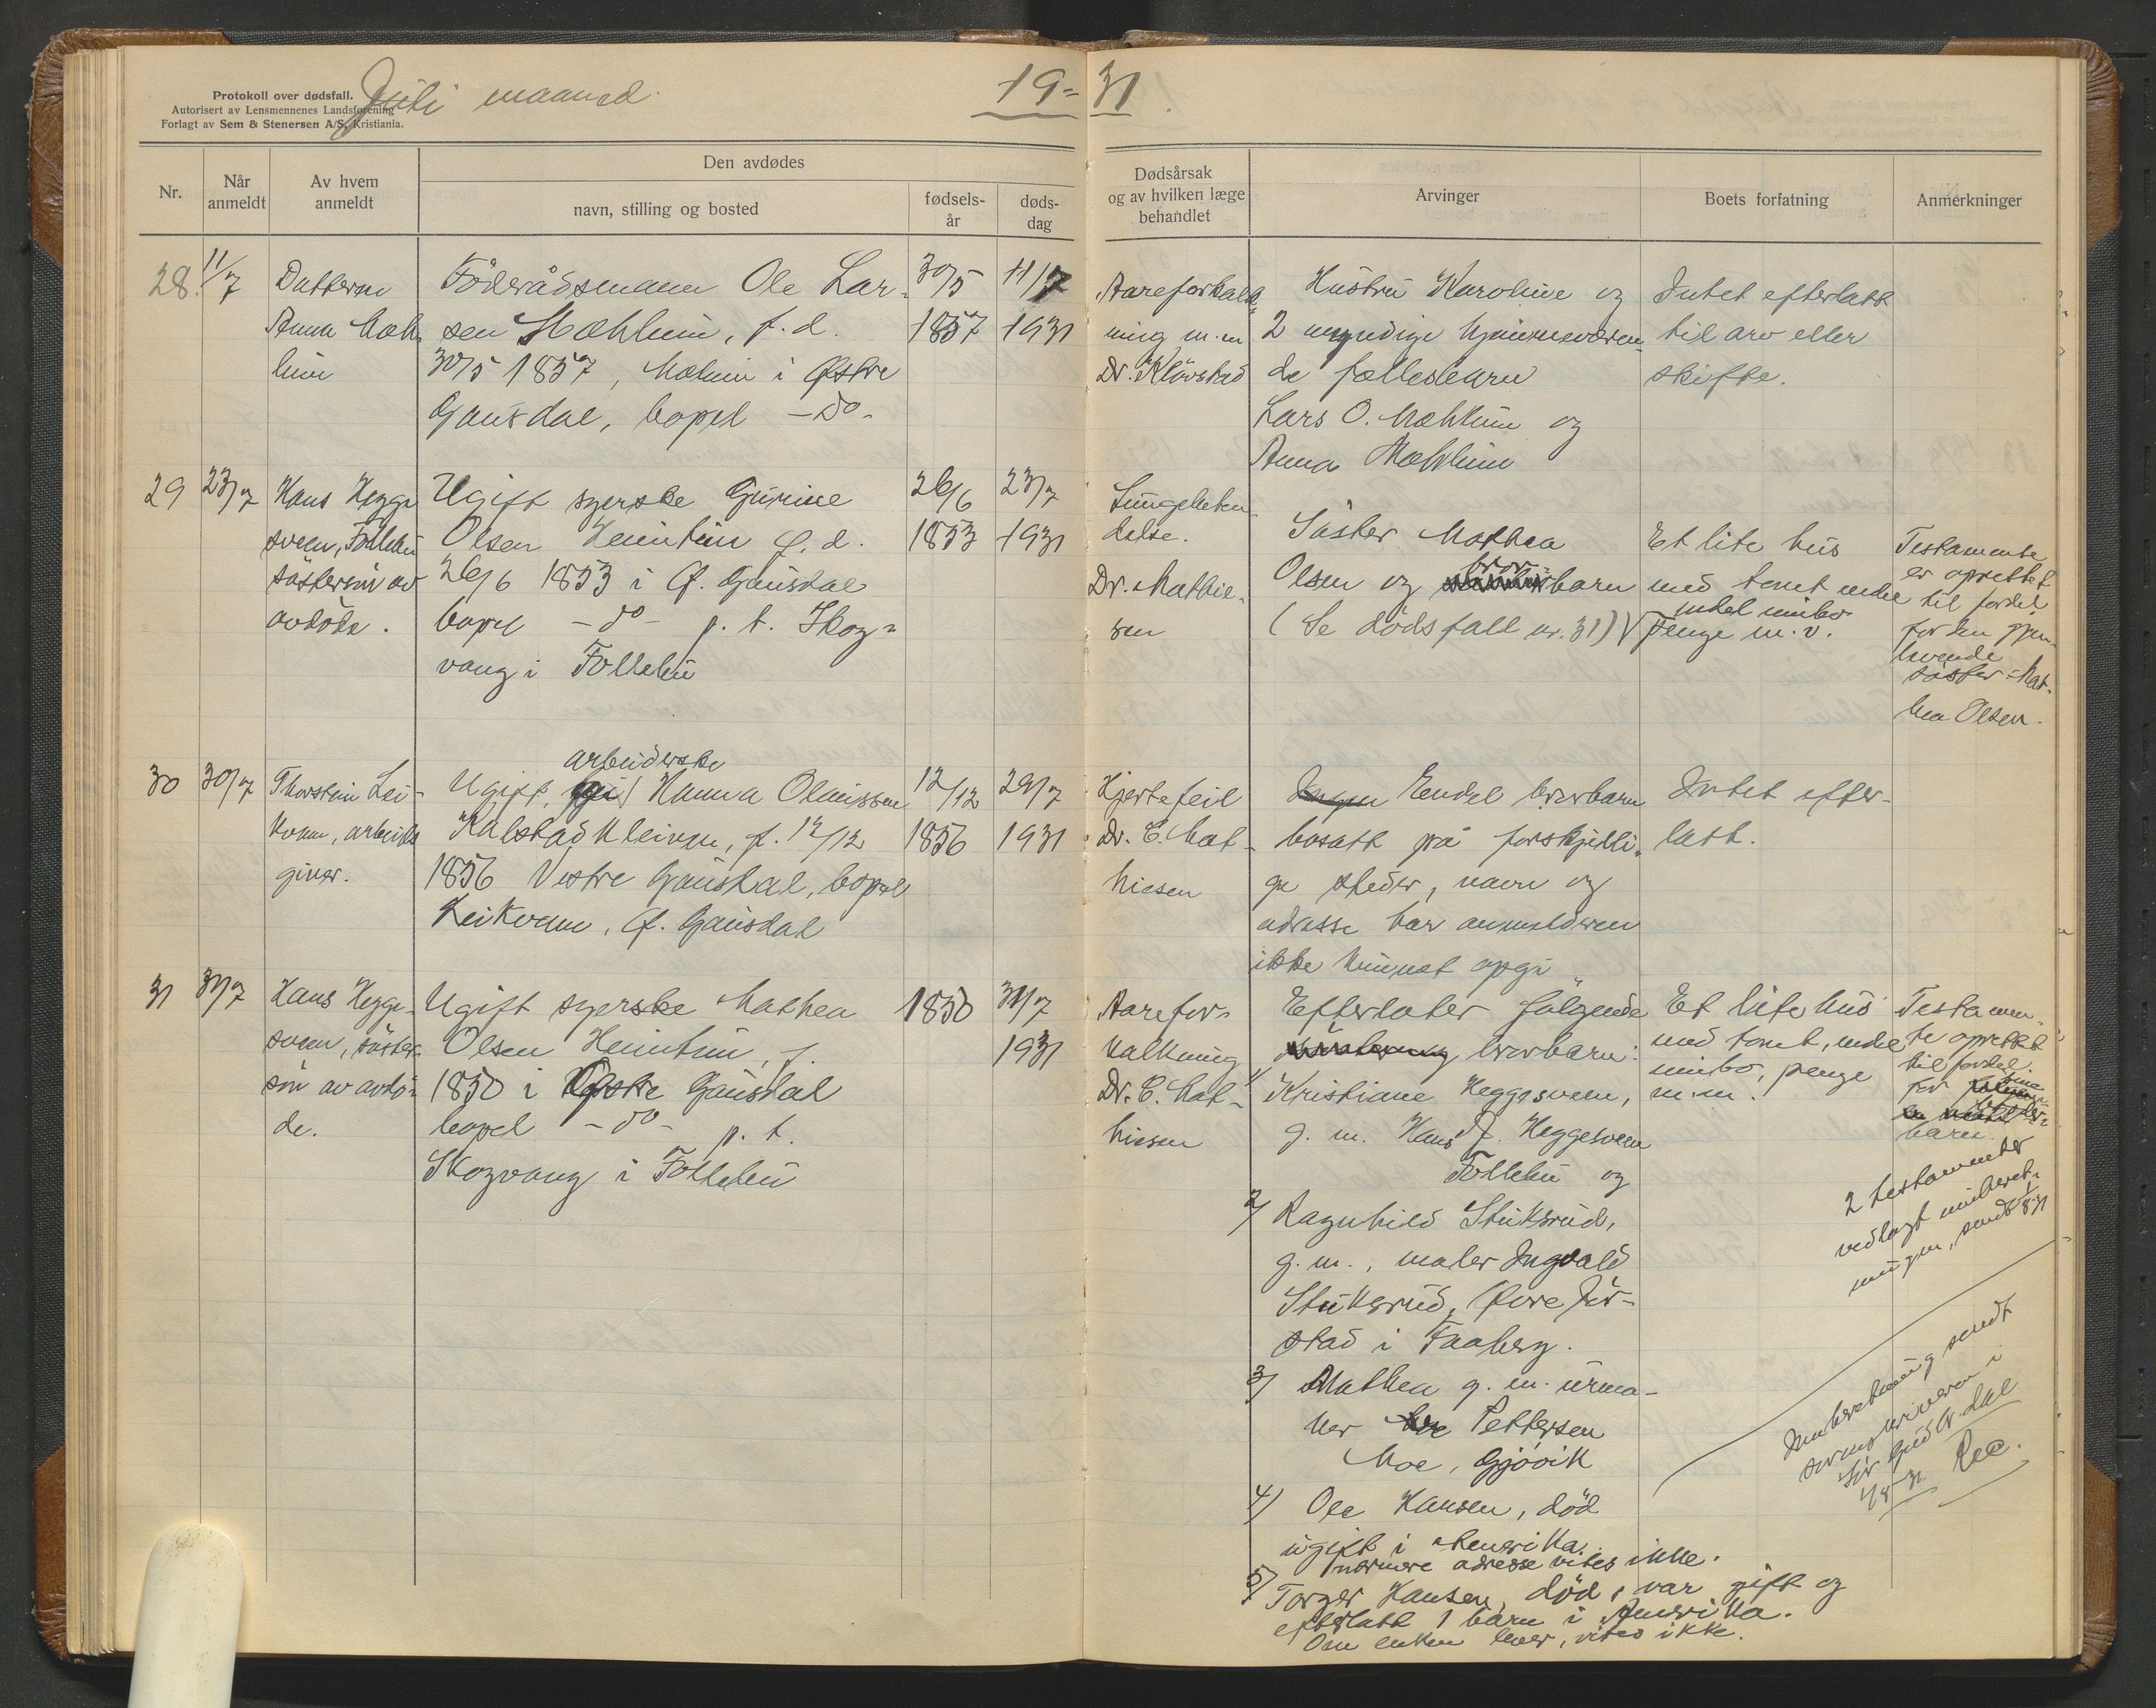 Protokoll over dødsfall.
Autorisert av Lensmennenes Landsforening
Forlagt av Sem & Stenersen A/S, Kristiania.
Juli maaned 19-31
Nr.
Når anmeldt
Av hvem anmeldt
Den avdødes
navn, stilling og bosted
fødsels-år
døds-dag
Dødsårsak og av hvilken læge behandlet
Arvinger
Boets forfatning
Anmerkninger
28. 11/7
Datteren
Anna Mæh
lum
Föderådsmann Ole Lar-
sen Mæhlum, f.d.
30/5 1857, Mælum i Østre
Gausdal, bopel -do-
30/5
1857
11/7
1931
Aareforkalk
ning m.m.
Dr. Kløvstad
Hustru Karoline og
2 myndige hjemmeværen-
de fællesbarn
Lars O. Mæhlum og
Anna Mæhlum
Intet efterlatt
til arv eller
skifte.
29 23/7
Hans Hegge
sveen, Follebu
søstersøn av
avdöde.
Ugift syerske Gurine
Olsen Heimtun f.d.
26/6 1853 i Ø. Gausdal
bopel -do- p.t. Skog-
vang i Follebu
26/6
1853
23/7
1931
Lungebeten
delse.
Dr. Mathie-
sen
Søster Mathea
bror-
Olsen og barn
(Se dødsfall nr. 31)
Et lite hus
med tomt endel
endel innbo
Penge m.v.
Testamente
er oprettet
til fordel
for den gjen-
levende
søster Mat-
hea Olsen.
30 30/7
Thorstein Lei-
kvam, arbeids
giver.
arbeiderske
Ugift, Hanna Olaussen
Kalstadkleiven, f. 12/12
1856 Vestre Gausdal, bopel
Leikvam, Ø. Gausdal
12/12
1856
29/7
1931
Hjertefeil
Dr. E. Mat-
hiesen
Ingen Endel brorbarn
bosatt på forskjelli-
ge steder, navn og
adresse har anmelderen
ikke kunnet opgi
Intet efter-
latt.
31 31/7
Hans Hegge-
sveen, søster-
søn av avdø-
de.
Ugift syerske Mathea
Olsen Heimtun, f.
1850 i Østre Gausdal
bopel -do- p.t.
Skogvang i Follebu
1850
31/7
1931
Aarefor-
kalkning
Dr. E. Mat-
hiesen
Efterlater følgende
brorbarn:
1/ Kristiane Heggesveen,
g.m. Hans J. Heggesveen
Follebu og
2/ Ragnhild Stuksrud,
g.m., maler Ingvald
Stuksrud, Øvre Jør-
stad i Faaberg.
3/ Mathea g.m. urma-
ker Pettersen
Moe, Gjøvik
4/ Ole Hansen, död
ugift i Amerika.
nærmere adresse vites ikke.
5/ Torger Hansen, död, var gift og
efterlatt 1 barn i Amerika.
Om enken lever, vites ikke.
Et lite hus
med tomt, endel
innbo, penge
m.m.
Testamen-
te oprettet
til fordel
for
barn.
2 testamenter
vedlagt innberet-
ningen, sendt 1/8 31
Innberetning sendt
sorenskriveren i
Sør Gudbr.dal
1/8-31